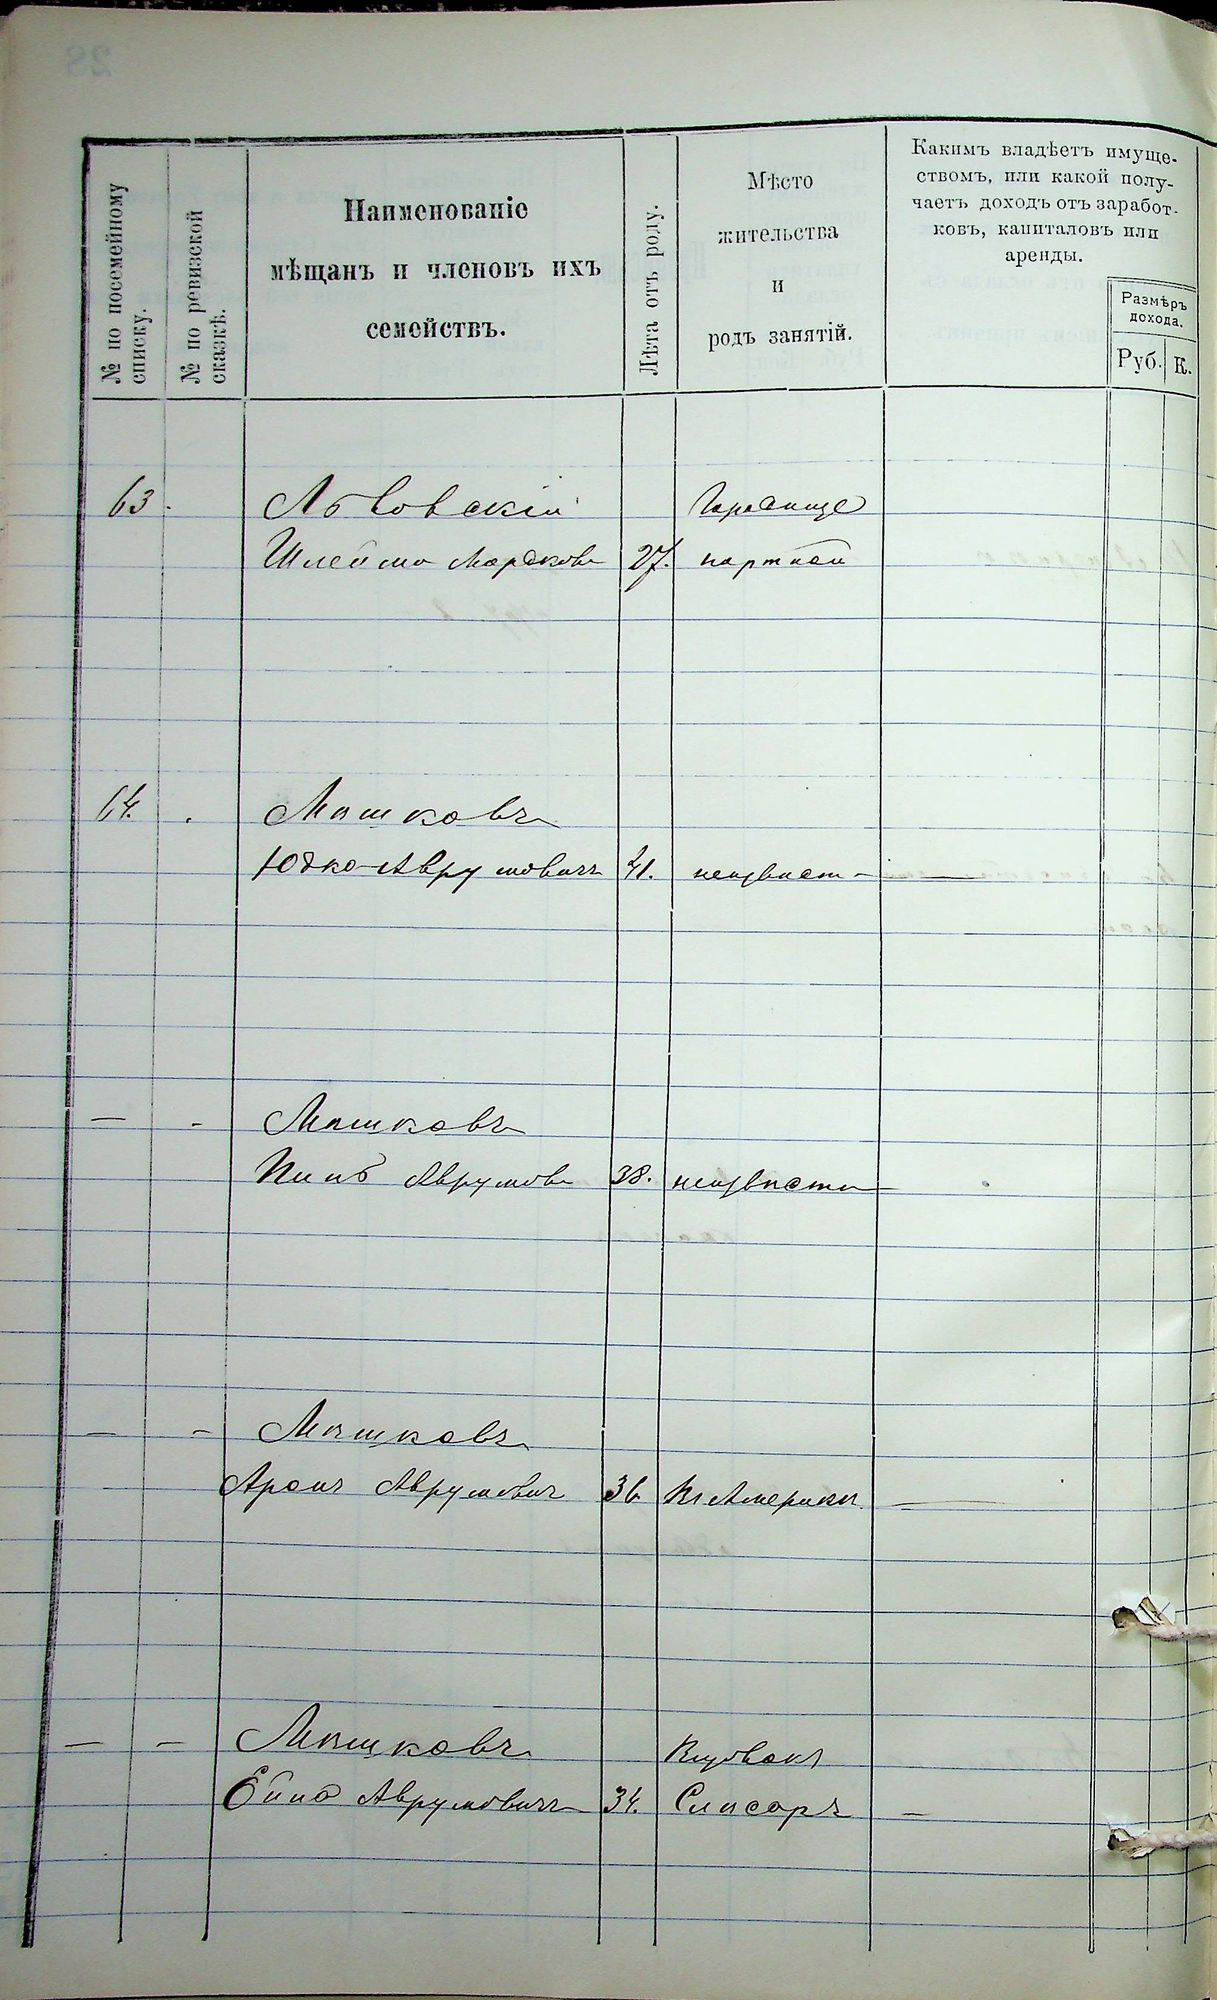 № по посемейному
списку.
№ по ревизской
сказкѣ.
Наименованіе
мѣщанъ и членовъ ихъ
семействъ.
Лѣта отъ роду.
Мѣсто
жительства
и
родъ занятій.
Какимъ владѣетъ имуще-
ствомъ, или какой полу-
чаетъ доходъ отъ заработ-
ковъ, капиталовъ или
аренды.
Размѣръ
дохода.
Руб. К.
63. Львовскій Городище
Шлейма Мордковъ 27. портной
64. Мошковъ
Юдко-Аврумовичъ 41. неизвѣст- —
— - Мошковъ
Аврумовъ 38. неизвѣстно —
— - Мошковъ
Аронъ Аврумовичъ 36 Въ Америкѣ. —
— — Мошковъ
Аврумовичъ 34. Слѣсарь —